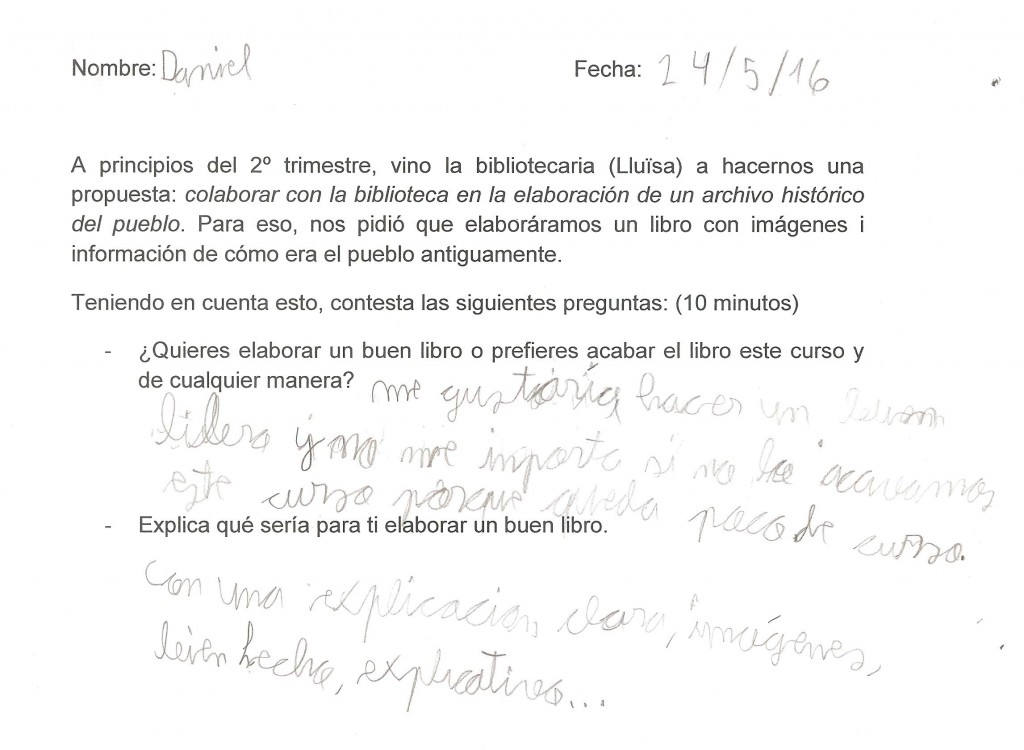 Nombre: Daniel
Fecha: 24/5/16
A principios del 2º trimestre, vino la bibliotecaria (Lluïsa) a hacernos una
propuesta: colaborar con la biblioteca en la elaboración de un archivo histórico
del pueblo. Para eso, nos pidió que elaboráramos un libro con imágenes i
información de cómo era el pueblo antiguamente.
Teniendo en cuenta esto, contesta las siguientes preguntas: (10 minutos)
- ¿Quieres elaborar un buen libro o prefieres acabar el libro este curso y
de cualquier manera? me gustaría hacer un
y no me importa si no lo acavamos
este curso porque queda poco de curso.
- Explica qué sería para ti elaborar un buen libro.
Con una explicacion clara, imágenes,
hecho, explicativo...